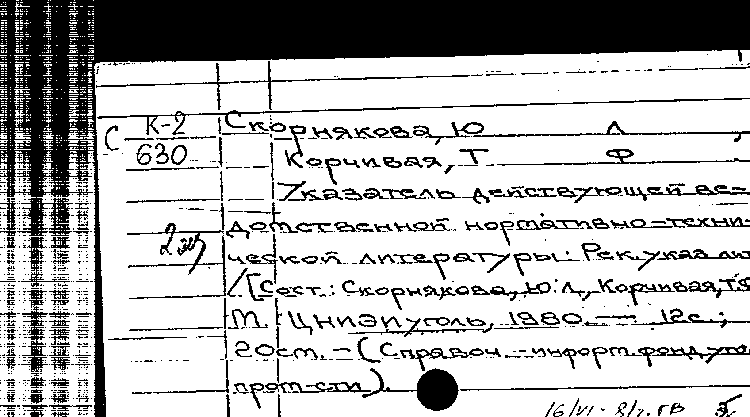 С К-2 Скорнякова, Ю Л
630 Корчивая, Т Ф
Указатель действующей ве-
домственной нормативно-техни-
2 экз
ческой литературы: Рек. указ. лит
/[Сост.: Скорнякова, Ю. Л., Корчивая, Т.Ф
М.: ЦНИЭИуголь, 1980. — 12с.;
20см. – (Справоч.-информ. фонд. уго
пром-сти).
16/VI - 81г. ГВ